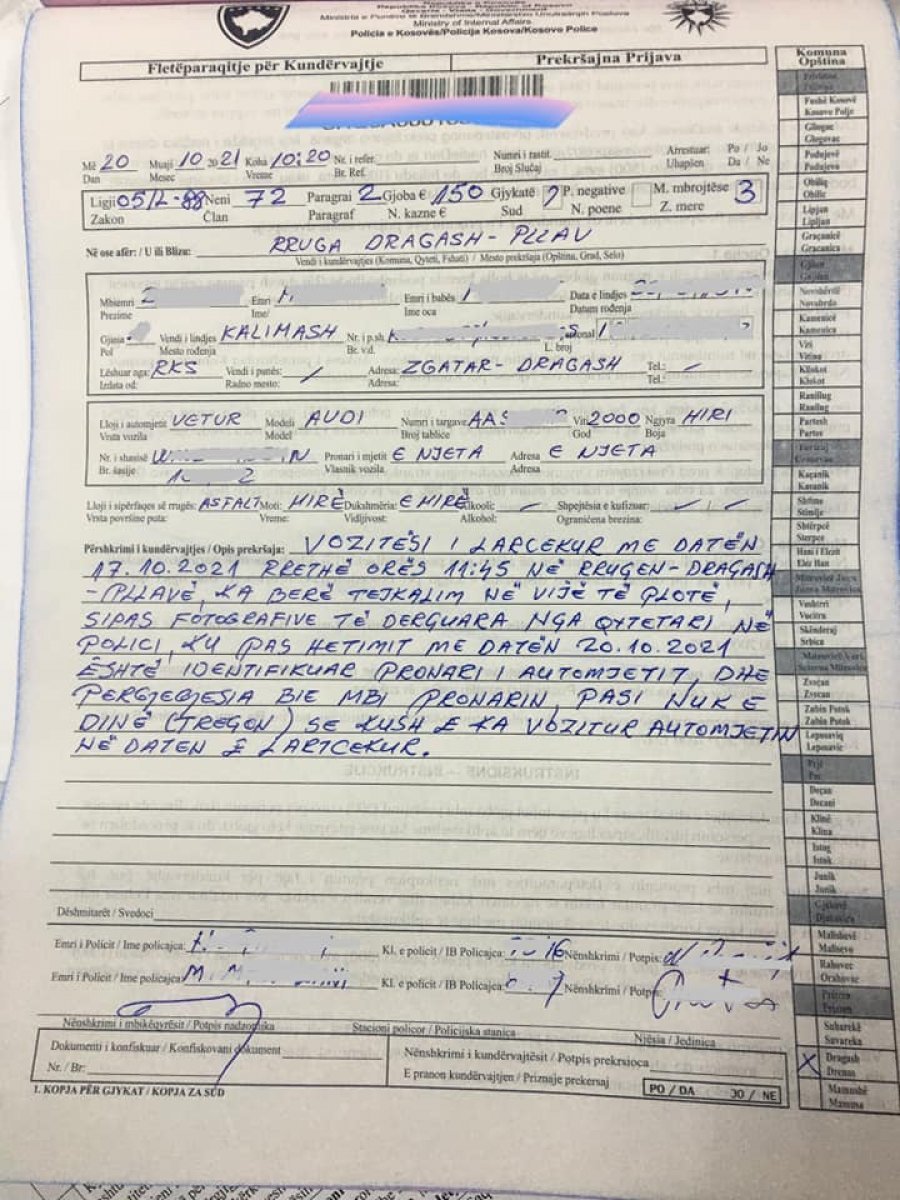 Republika e Kosovës
Republika Kosova - Republic of Kosovo
Qeveria - Vlada - Government
Ministria e Punëve të Brendshme/Ministarstvo Unutrašnjih Poslova
Ministry of Internal Affairs
Policia e Kosovës/Policija Kosova/Kosovo Police
Fletëparaqitje për Kundërvajtje Prekršajna Prijava
Më 20 Muaji 10 2021 Koha 10:20 Nr. i refer. Numri i rastit. Arrestuar: Po / Jo
Dan Mesec Vreme: Br. Ref. Broj Slučaj Uhapšen Da / Ne
Ligji 05/L-88 Neni 72 Paragrai 2 Gjoba € 150 Gjykatë P. negative M. mbrojtëse 3
Zakon Član Paragraf N. kazne € Sud N. poene Z. mere
Në ose afër: / U ili Blizu: RRUGA DRAGASH - PLLAV
Vendi i kundërvajtjes (Komuna, Qyteti, Fshati) / Mesto prekršaja (Opština, Grad, Selo)
Mbiemri Emri Emri i babës Data e lindjes
Prezime Ime/ Ime oca Datum rođenja
Gjinia Vendi i lindjes KALIMASH Nr. i p.sh
Pol Mesto rođenja Br. v.d. L. broj
Lëshuar nga: RKS Vendi i punës: / Adresa: ZGATAR - DRAGASH Tel.: /
Izdata od: Radno mesto: Adresa: Tel.:
Lloji i automjetit VETUR Modeli AUDI Numri i targave AAS Viti 2000 Ngjyra HIRI
Vrsta vozila Model Broj tablice God Boja
Nr. i shasisë Pronari i mjetit E NJETA Adresa E NJETA
Br. šasije Vlasnik vozila Adresa
Lloji i sipërfaqes së rrugës: ASFALT Moti: MIRË Dukshmëria: E MIRË Alkooli: / Shpejtësia e kufizuar: / /
Vrsta površine puta: Vreme: Vidljivost: Alkohol: Ograničena brezina:
Përshkrimi i kundërvajtjes / Opis prekršaja: VOZITËSI I LARCEKUR ME DATËN
17.10.2021 RRETHË ORËS 11:45 NË RRUGEN-DRAGASH
-PLLAVË, KA BERË TEJKALIM NË VIJË TË PLOTË,
SIPAS FOTOGRAFIVE TË DERGUARA NGA QYTETARI NË
POLICI, KU PAS HETIMIT ME DATËN 20.10.2021
ËSHTË IDENTIFIKUAR PRONARI I AUTOMJETIT, DHE
PERGJEGJESIA BIE MBI PRONARIN, PASI NUK E
DINË (TREGON) SE KUSH E KA VOZITUR AUTOMJETIN
NË DATEN E LARTCEKUR.
Dëshmitarët / Svedoci
Emri i Policit / Ime policajca: Kl. e policit / IB Policajca Nënshkrimi / Potpis:
Emri i Policit / Ime policajca: Kl. e policit / IB Policajca Nënshkrimi / Potpis:
Nënshkrimi i mbikëqyrësit / Potpis nadzornika Stacioni policor / Policijska stanica Njësia / Jedinica
Dokumenti i konfiskuar / Konfiskovani dokument Nënshkrimi i kundërvajtësit / Potpis prekrsioca
Nr. / Br: E pranon kundërvajtjen / Priznaje prekersaj PO / DA JO / NE
1. KOPJA PËR GJYKAT / KOPJA ZA SUD
Komuna
Opština
Fushë Kosovë
Kosovo Polje
Gllogac
Glogovac
Podujevë
Podujevo
Obiliq
Obilić
Lipjan
Lipljan
Graçanicë
Gračanica
Novobërdë
Novobrdo
Kamenicë
Kamenica
Viti
Vitina
Kllokot
Klokot
Ranillug
Ranilug
Partesh
Parteš
Kaçanik
Kačanik
Shtime
Štimlje
Shtërpcë
Štrpce
Hani i Elezit
Elez Han
Vushtrri
Vučitrn
Skënderaj
Srbica
Zveçan
Zvečan
Zubin Potok
Zubin Potok
Leposaviq
Leposavić
Pejë
Peć
Deçan
Dečani
Klinë
Klina
Istog
Istok
Junik
Junik
Gjakovë
Malishevë
Mališevo
Rahovec
Orahovac
Prizren
Prizren
Suharekë
Suvareka
X Dragash
Mamushë